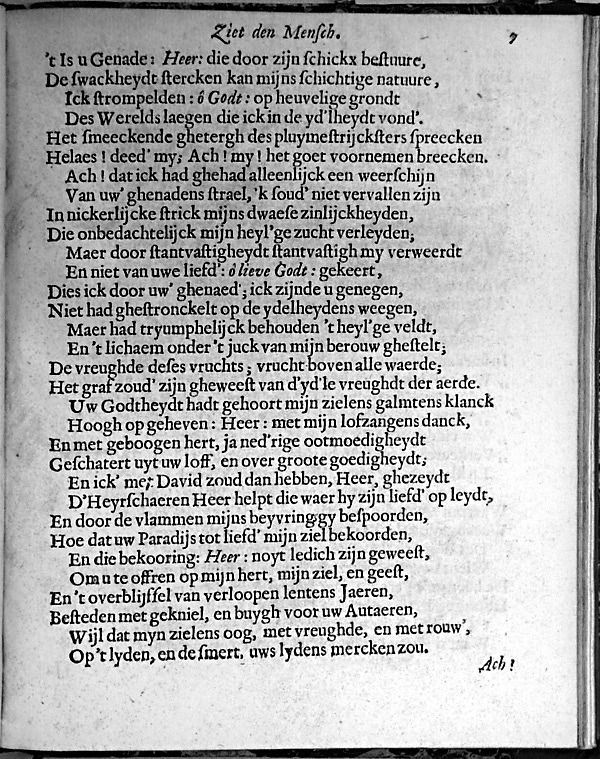 Ziet den Menſch. 7
't Is u Genade: Heer: die door zijn ſchickx beſtuure,
De ſwackheydt ſtercken kan mijns ſchichtige natuure,
Ick ſtrompelden: ô Godt: op heuvelige grondt
Des Werelds laegen die ick in de yd'lheydt vond'.
Het ſmeeckende ghetergh des pluymeſtrijckſters ſpreecken
Helaes! deed' my; Ach! my! het goet voornemen breecken.
Ach! dat ick had ghehad alleenlijck een weerſchijn
Van uw' ghenadens ſtrael, 'k ſoud' niet vervallen zijn
In nickerlijcke ſtrick mijns dwaeſe zinlijckheyden,
Die onbedachtelijck mijn heyl'ge zucht verleyden;
Maer door ſtantvaſtigheydt ſtantvaſtigh my verweerdt
En niet van uwe liefd': ô lieve Godt: gekeert,
Dies ick door uw' ghenaed'; ick zijnde u genegen,
Niet had gheſtronckelt op de ydelheydens weegen,
Maer had tryumphelijck behouden 't heyl'ge veldt,
En 't lichaem onder 't juck van mijn berouw gheſtelt;
De vreughde deſes vruchts; vrucht boven alle waerde;
Het graf zoud' zijn gheweeſt van d'yd'le vreughdt der aerde.
Uw Godtheydt hadt gehoort mijn zielens galmtens klanck
Hoogh op geheven: Heer: met mijn lofzangens danck,
En met geboogen hert, ja ned'rige ootmoedigheydt
Geſchatert uyt uw loff, en over groote goedigheydt;
En ick' met David zoud dan hebben, Heer, ghezeydt
D'Heyrſchaeren Heer helpt die waer hy zijn liefd' op leydt,
En door de vlammen mijns beyvringgy beſpoorden,
Hoe dat uw Paradijs tot liefd' mijn ziel bekoorden,
En die bekooring: Heer: noyt ledich zijn geweeſt,
Om u te offren op mijn hert, mijn ziel, en geeſt,
En 't overblijſſel van verloopen lentens Jaeren,
Beſteden met gekniel, en buygh voor uw Autaeren,
Wijl dat myn zielens oog, met vreughde, en met rouw,
Op 't lyden, en de ſmert, uws lydens mercken zou.
Ach!